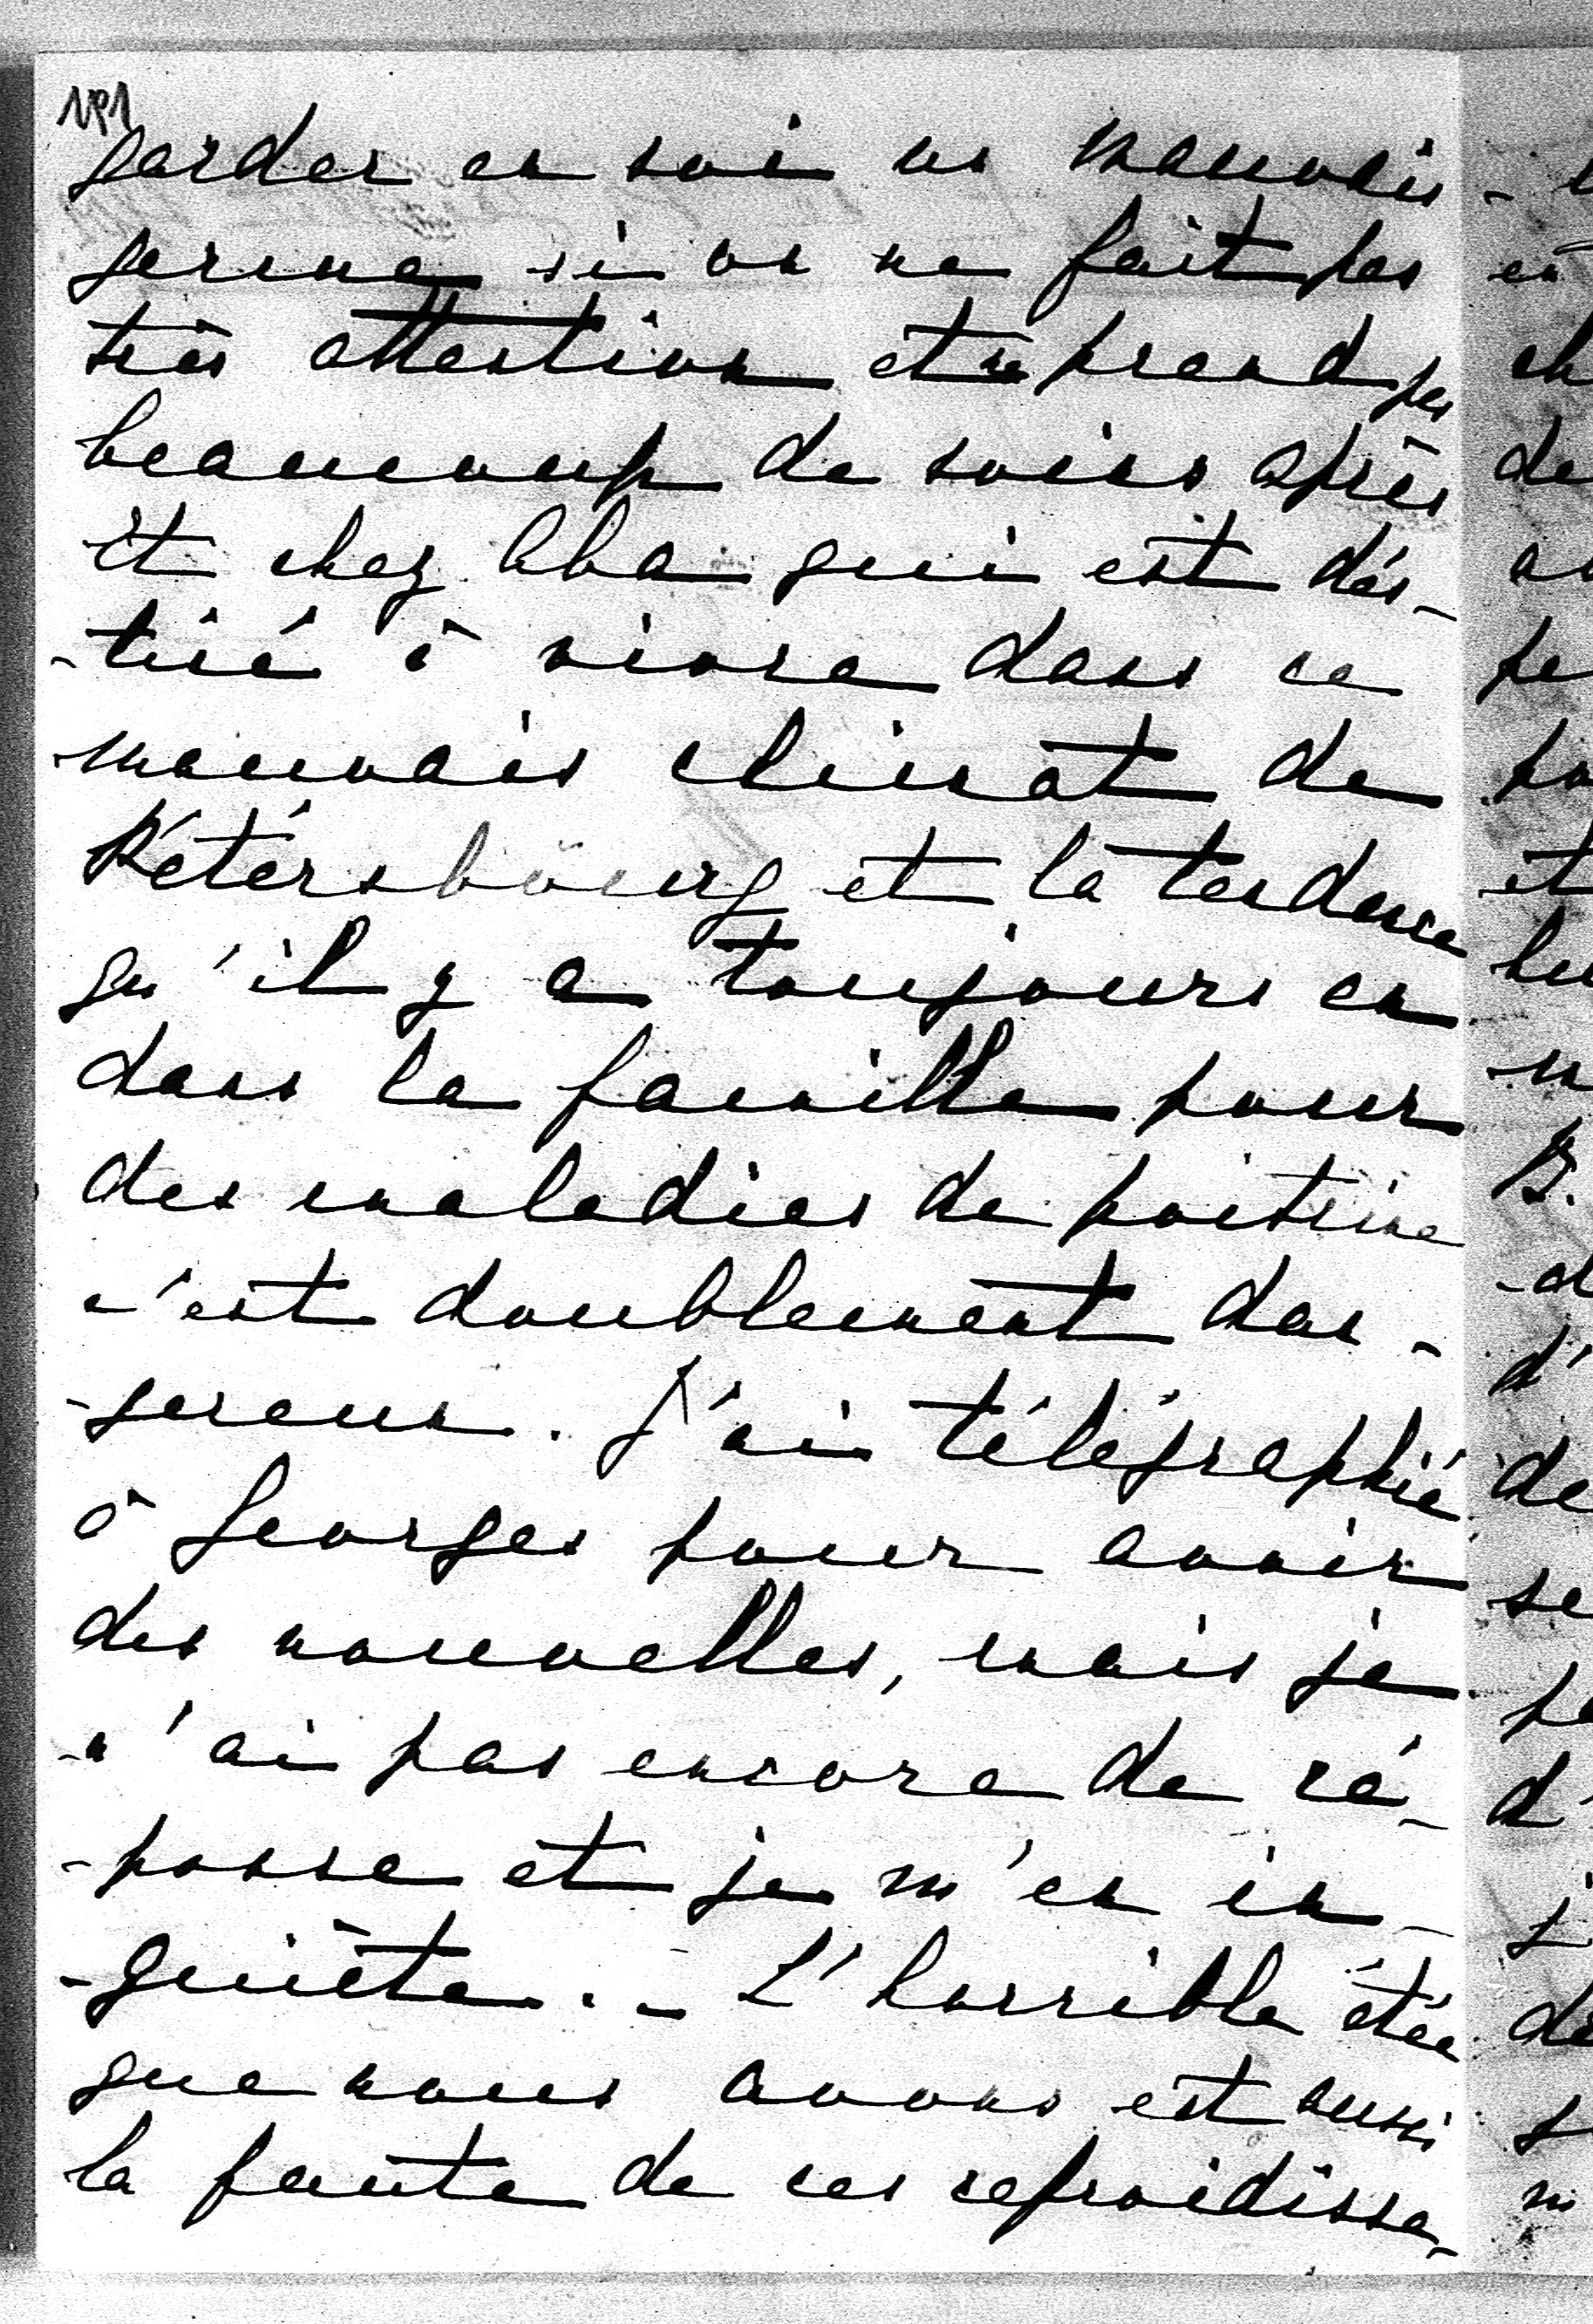 garder en soi un mauvais
germe si on ne fait pas
très attention et ne prend pas
beaucoup de soins après
Et chez Aba qui est dés-
-tiné à vivre dans ce
mauvais climat de
Pétérsbourg et la tendance
qu'il y a toujours eu
dans la famille pour
des maladies de poitrine
c'est doublement dan-
-gereux. J'ai télégraphié
à Georges pour avoir
des nouvelles, mais je
n'ai pas encore de ré-
-ponse et je m'en in-
-quiète. - L'horrible étée
que nous avons est aussi
la faute de ces refroidisse-